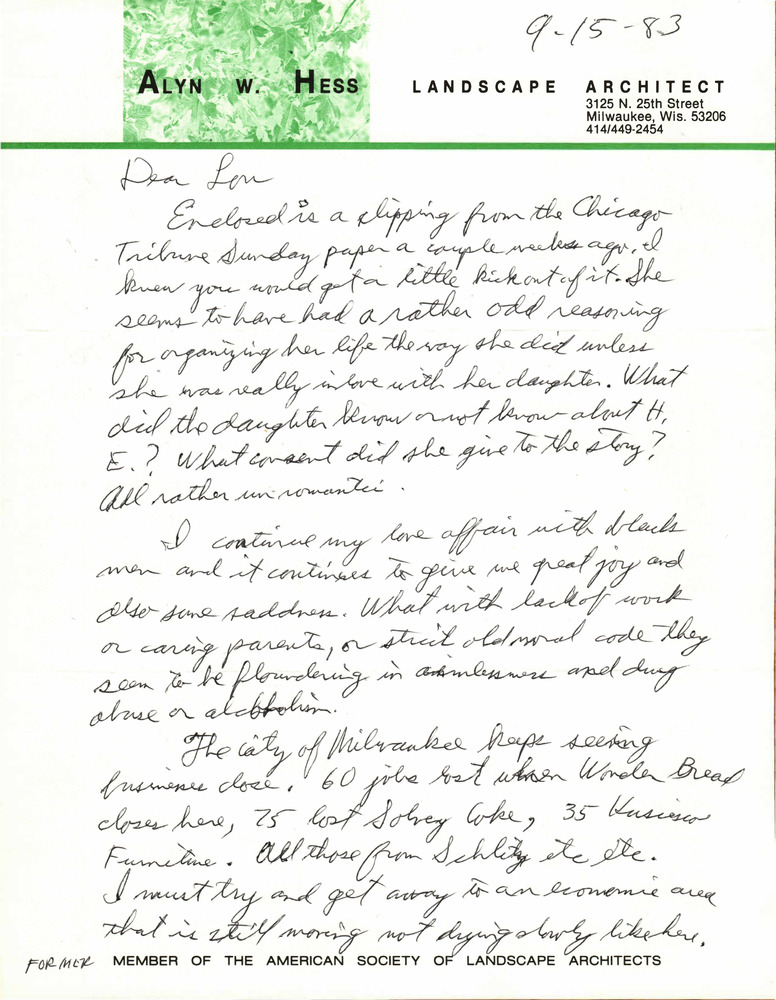 9-15-83
ALYN W. HESS
LANDSCAPE ARCHITECT
3125 N. 25th Street
Milwaukee, Wis. 53206
414/449-2454
Dear Lon
Enclosed is a clipping from the Chicago
Tribune Sunday paper a couple weeks ago. I
knew you would get a little kick out of it. She
seems to have had a rather odd reasoning
for organizing her life the way she did unless
she was really in love with her daughter. What
did the daughter know or not know about H.
E.? What consent did she give to the story?
All rather unromantic.
I continue my love affair with blacks
men and it continues to give me great joy and
also some saddness. What with lack of work
or caring parents, or strict old moral code they
seem to be floundering in aimlessness and drug
abuse or alcoholism.
The city of Milwaukee keeps seeing
businesses close. 60 jobs lost when Wonder Bread
closes here, 75 lost Solvey Coke, 35
Furniture. All those from Schlitz etc etc.
I must try and get away to an economic area
that is still moving not dying slowly like here.
FORMER MEMBER OF THE AMERICAN SOCIETY OF LANDSCAPE ARCHITECTS